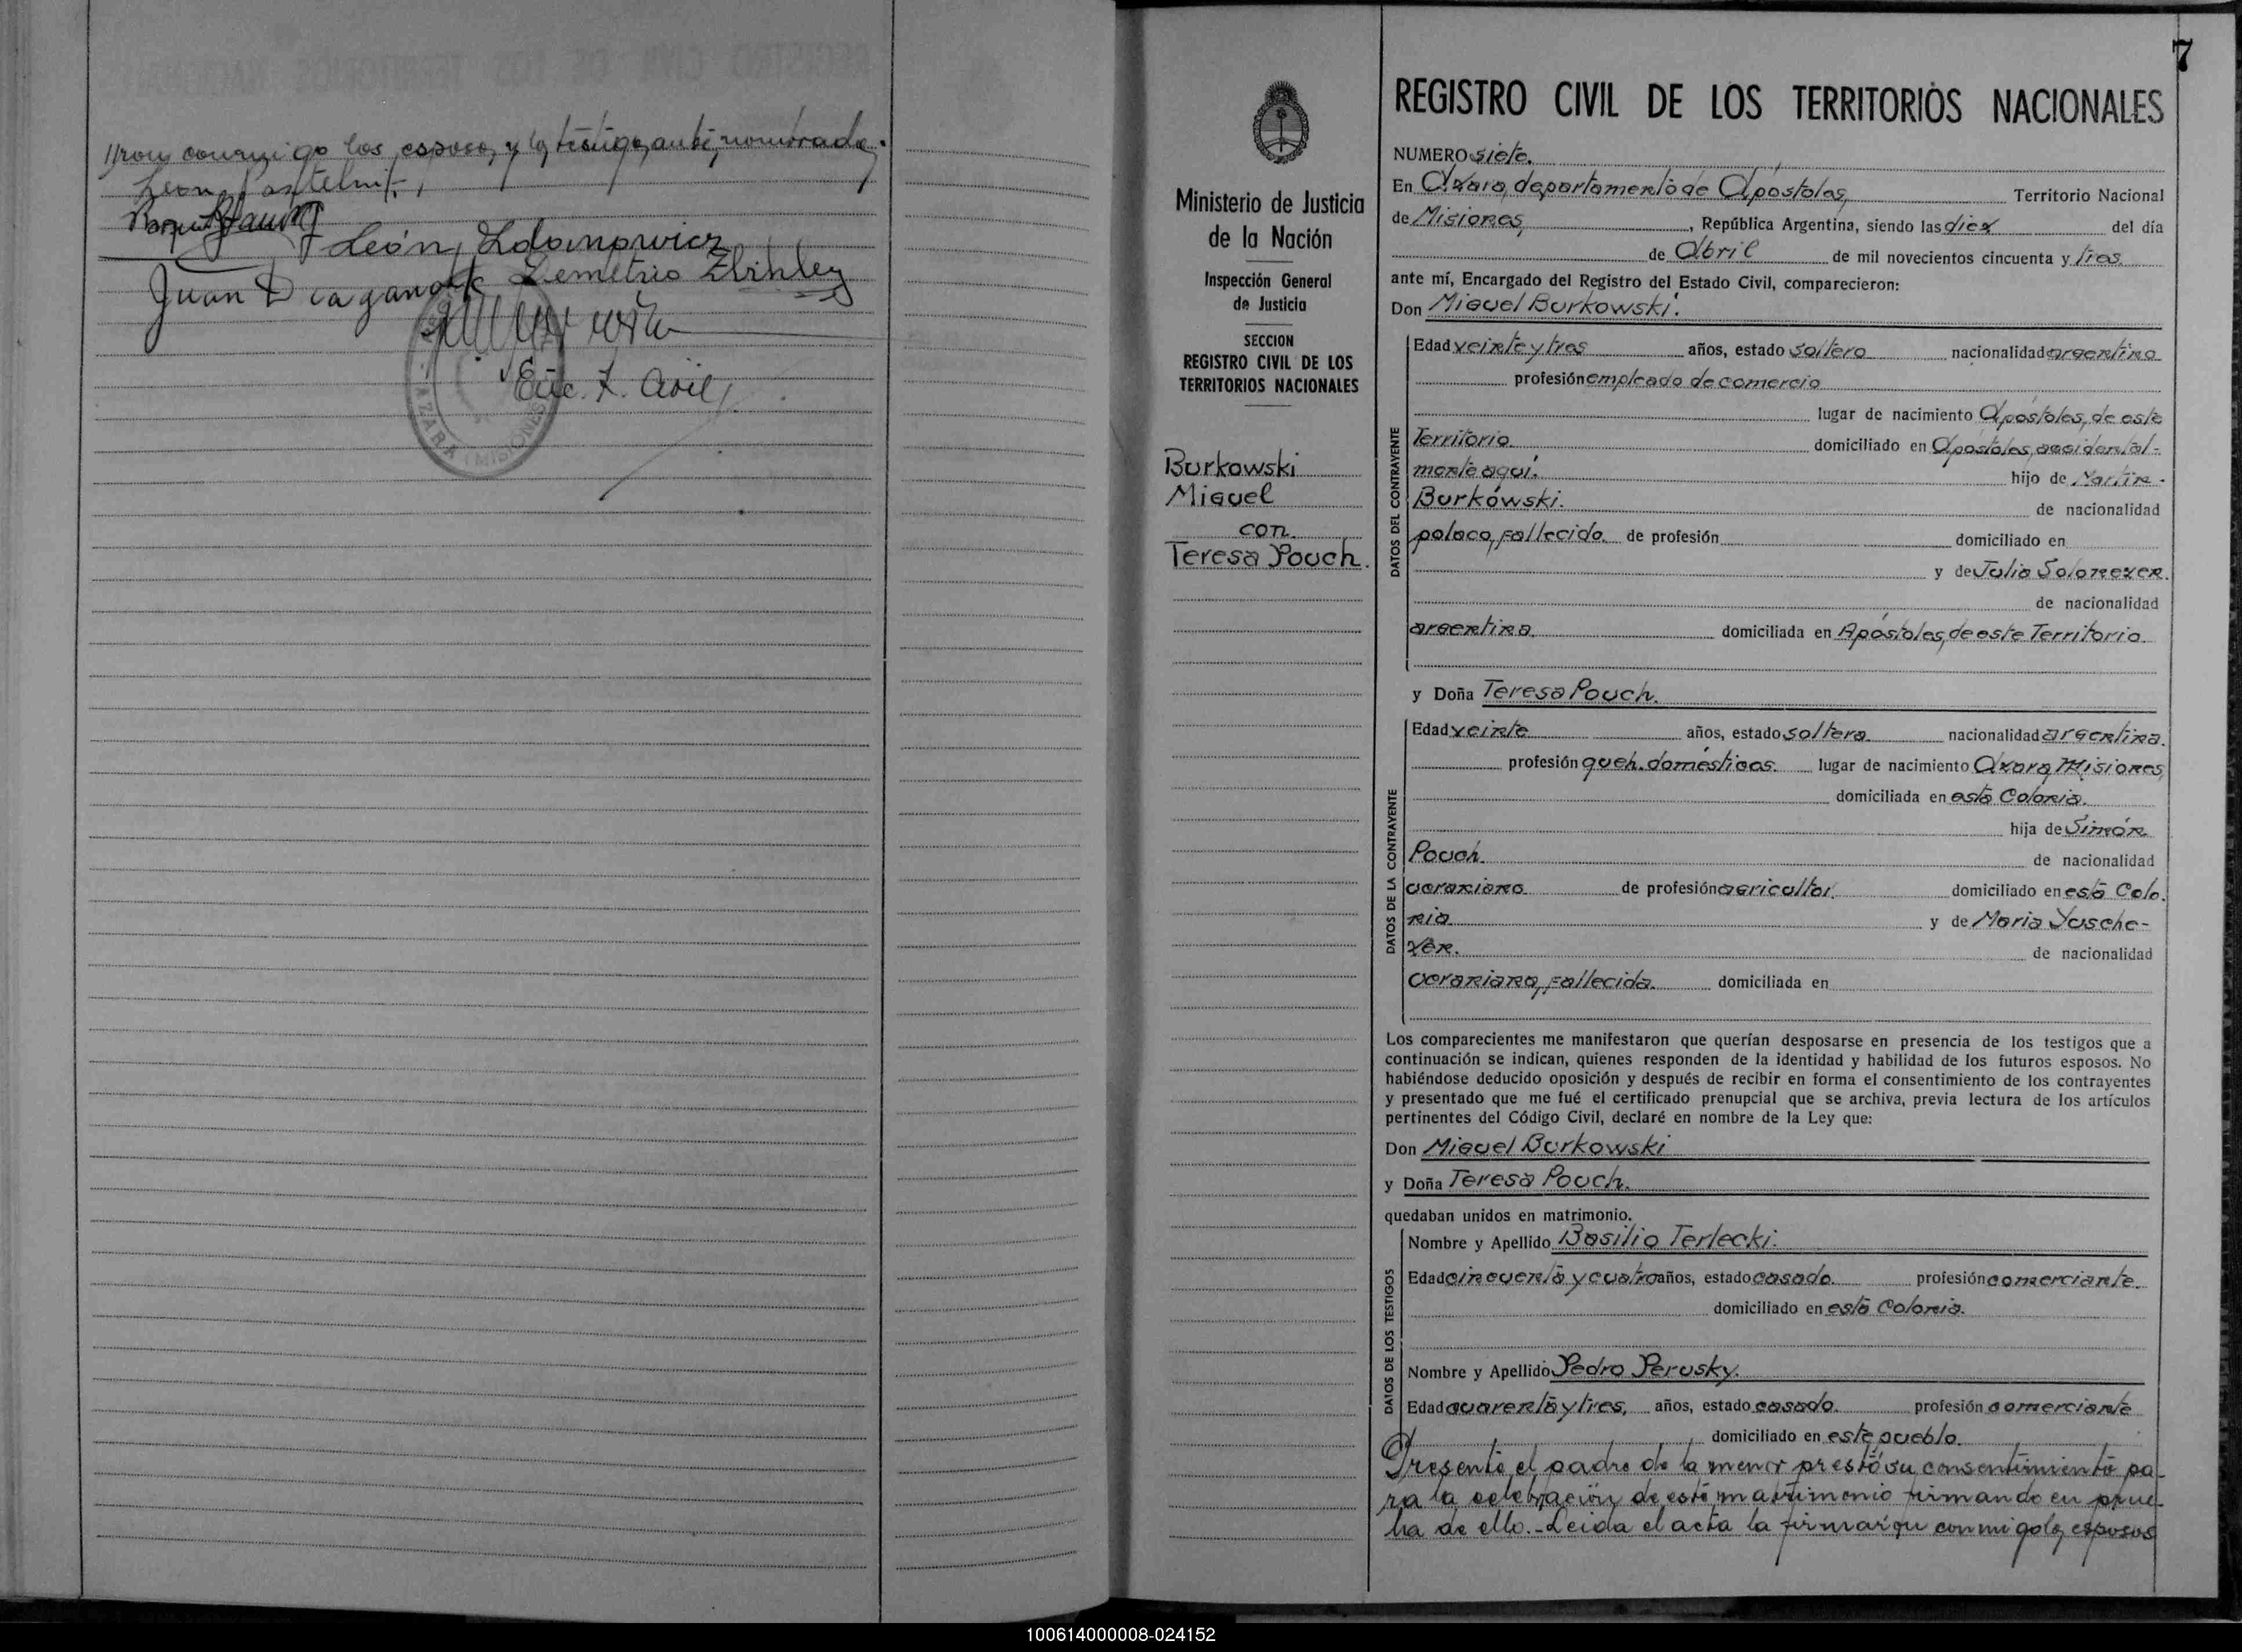 ron conmigo los esposos y los testigos antes nombrados.
León
León Zdanowicz
Juan Demetrio
Enc. R. Civil
AZARA (MISIONES)
7
REGISTRO CIVIL DE LOS TERRITORIOS NACIONALES
Ministerio de Justicia
de la Nación
Inspección General
de Justicia
SECCION
REGISTRO CIVIL DE LOS
TERRITORIOS NACIONALES
Burkowski
Miguel
con
Teresa Pouch.
NUMERO siete.
En Azara, departamento de Apóstoles, Territorio Nacional
de Misiones, República Argentina, siendo las diez del día
de Abril de mil novecientos cincuenta y tres
ante mí, Encargado del Registro del Estado Civil, comparecieron:
Don Miguel Burkowski.
DATOS DEL CONTRAYENTE
Edad veinte y tres años, estado soltero nacionalidad argentino
profesión empleado de comercio
lugar de nacimiento Apóstoles, de este
Territorio. domiciliado en Apóstoles, accidental-
mente aquí. hijo de Martín
Burkowski. de nacionalidad
polaco, fallecido. de profesión domiciliado en
y de Julia Solonezen.
de nacionalidad
argentina. domiciliada en Apóstoles, de este Territorio
y Doña Teresa Pouch.
DATOS DE LA CONTRAYENTE
Edad veinte años, estado soltera nacionalidad argentina.
profesión queh. domésticos. lugar de nacimiento Azara, Misiones,
domiciliada en esta Colonia.
hija de Simón
Pouch. de nacionalidad
ucraniano de profesión agricultor. domiciliado en esta Colo.
nia y de Maria Jusche-
zen. de nacionalidad
ucraniana, fallecida. domiciliada en
Los comparecientes me manifestaron que querían desposarse en presencia de los testigos que a
continuación se indican, quienes responden de la identidad y habilidad de los futuros esposos. No
habiéndose deducido oposición y después de recibir en forma el consentimiento de los contrayentes
y presentado que me fué el certificado prenupcial que se archiva, previa lectura de los artículos
pertinentes del Código Civil, declaré en nombre de la Ley que:
Don Miguel Burkowski
y Doña Teresa Pouch.
quedaban unidos en matrimonio.
DATOS DE LOS TESTIGOS
Nombre y Apellido Basilio Terlecki.
Edad cincuenta y cuatro años, estado casado. profesión comerciante.
domiciliado en esta Colonia.
Nombre y Apellido Pedro Perusky.
Edad cuarenta y tres, años, estado casado. profesión comerciante
domiciliado en este pueblo.
Presente el padre de la menor prestó su consentimiento pa-
ra la celebración de este matrimonio firmando en prue-
ba de ello.-Leida el acta la firmaron conmigo los esposos
100614000008-024152